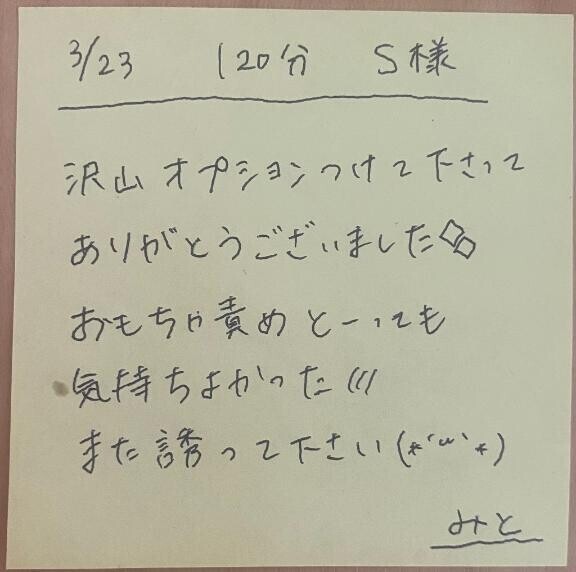 3/23 120分 S様
沢山オプションつけて下さって
ありがとうございました
おもちゃ責めとーっても
気持ちよかった///
また誘って下さい(*´ω`*)
みと